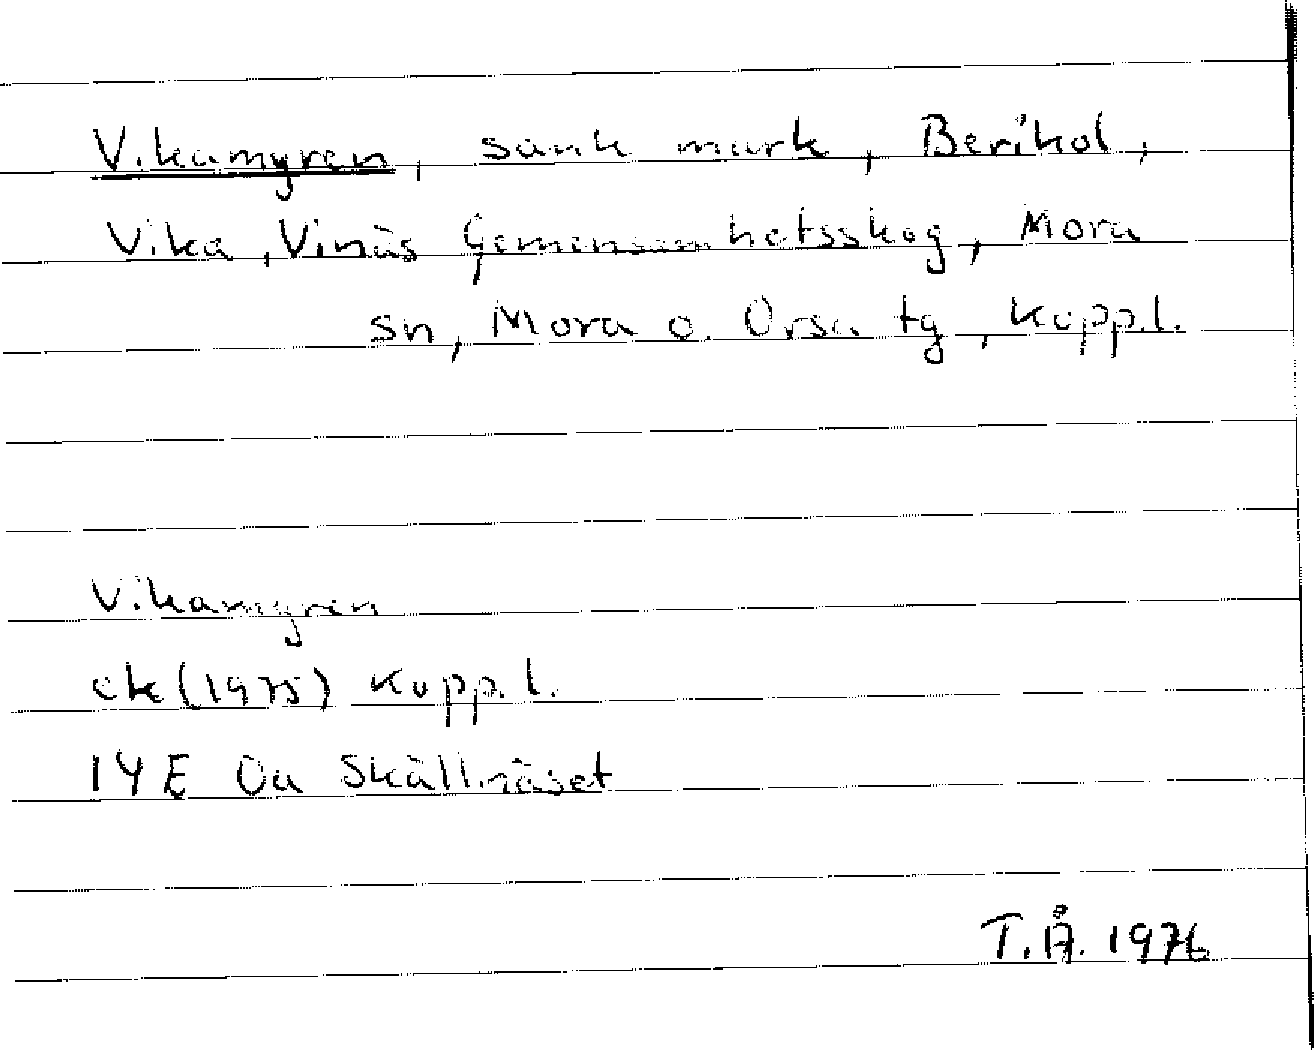 Vikamyren, sank mark, Berikol,
Vika, Vinäs Gemensamhetsskog, Mora
sn, Mora o. Orsa tg, Kopp.l.
Vikamyren
ek (1975) Kopp.l.
14E 0a Skällnäset
T.Å. 1976